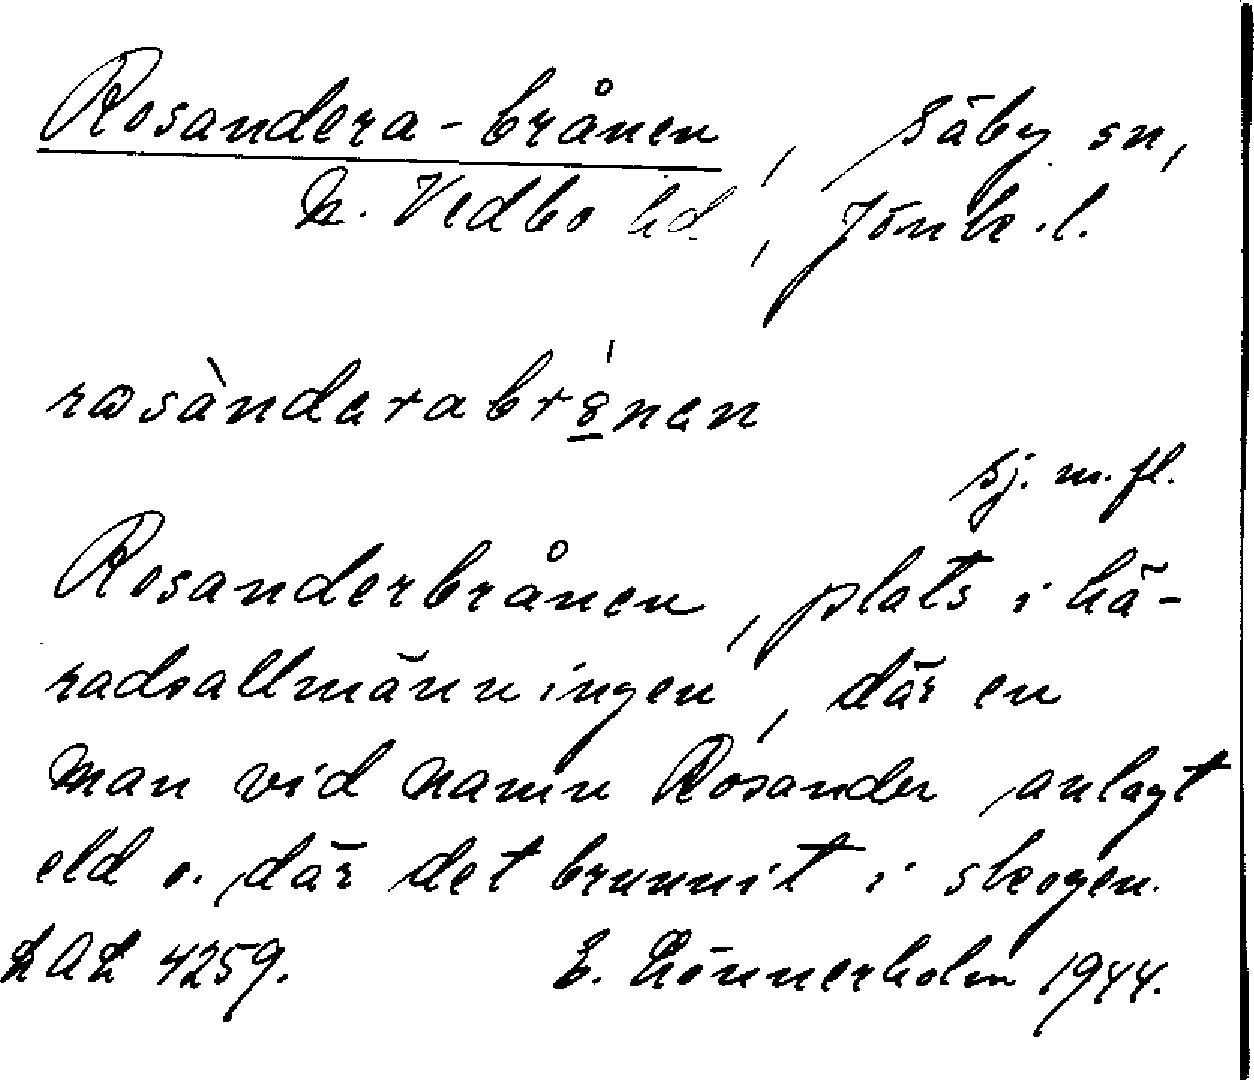 Rosandera-brånen, Säby sn,
N. Vedbo hd, Jönk. l.
rosàndərabr8́nən
sj. m. fl.
Rosanderbrånen, plats i hä-
radsallmänningen, där en
man vid namn Rosander anlagt
eld o. där det brunnit i skogen.
LAL 4259. E. Lönnerholm 1944.